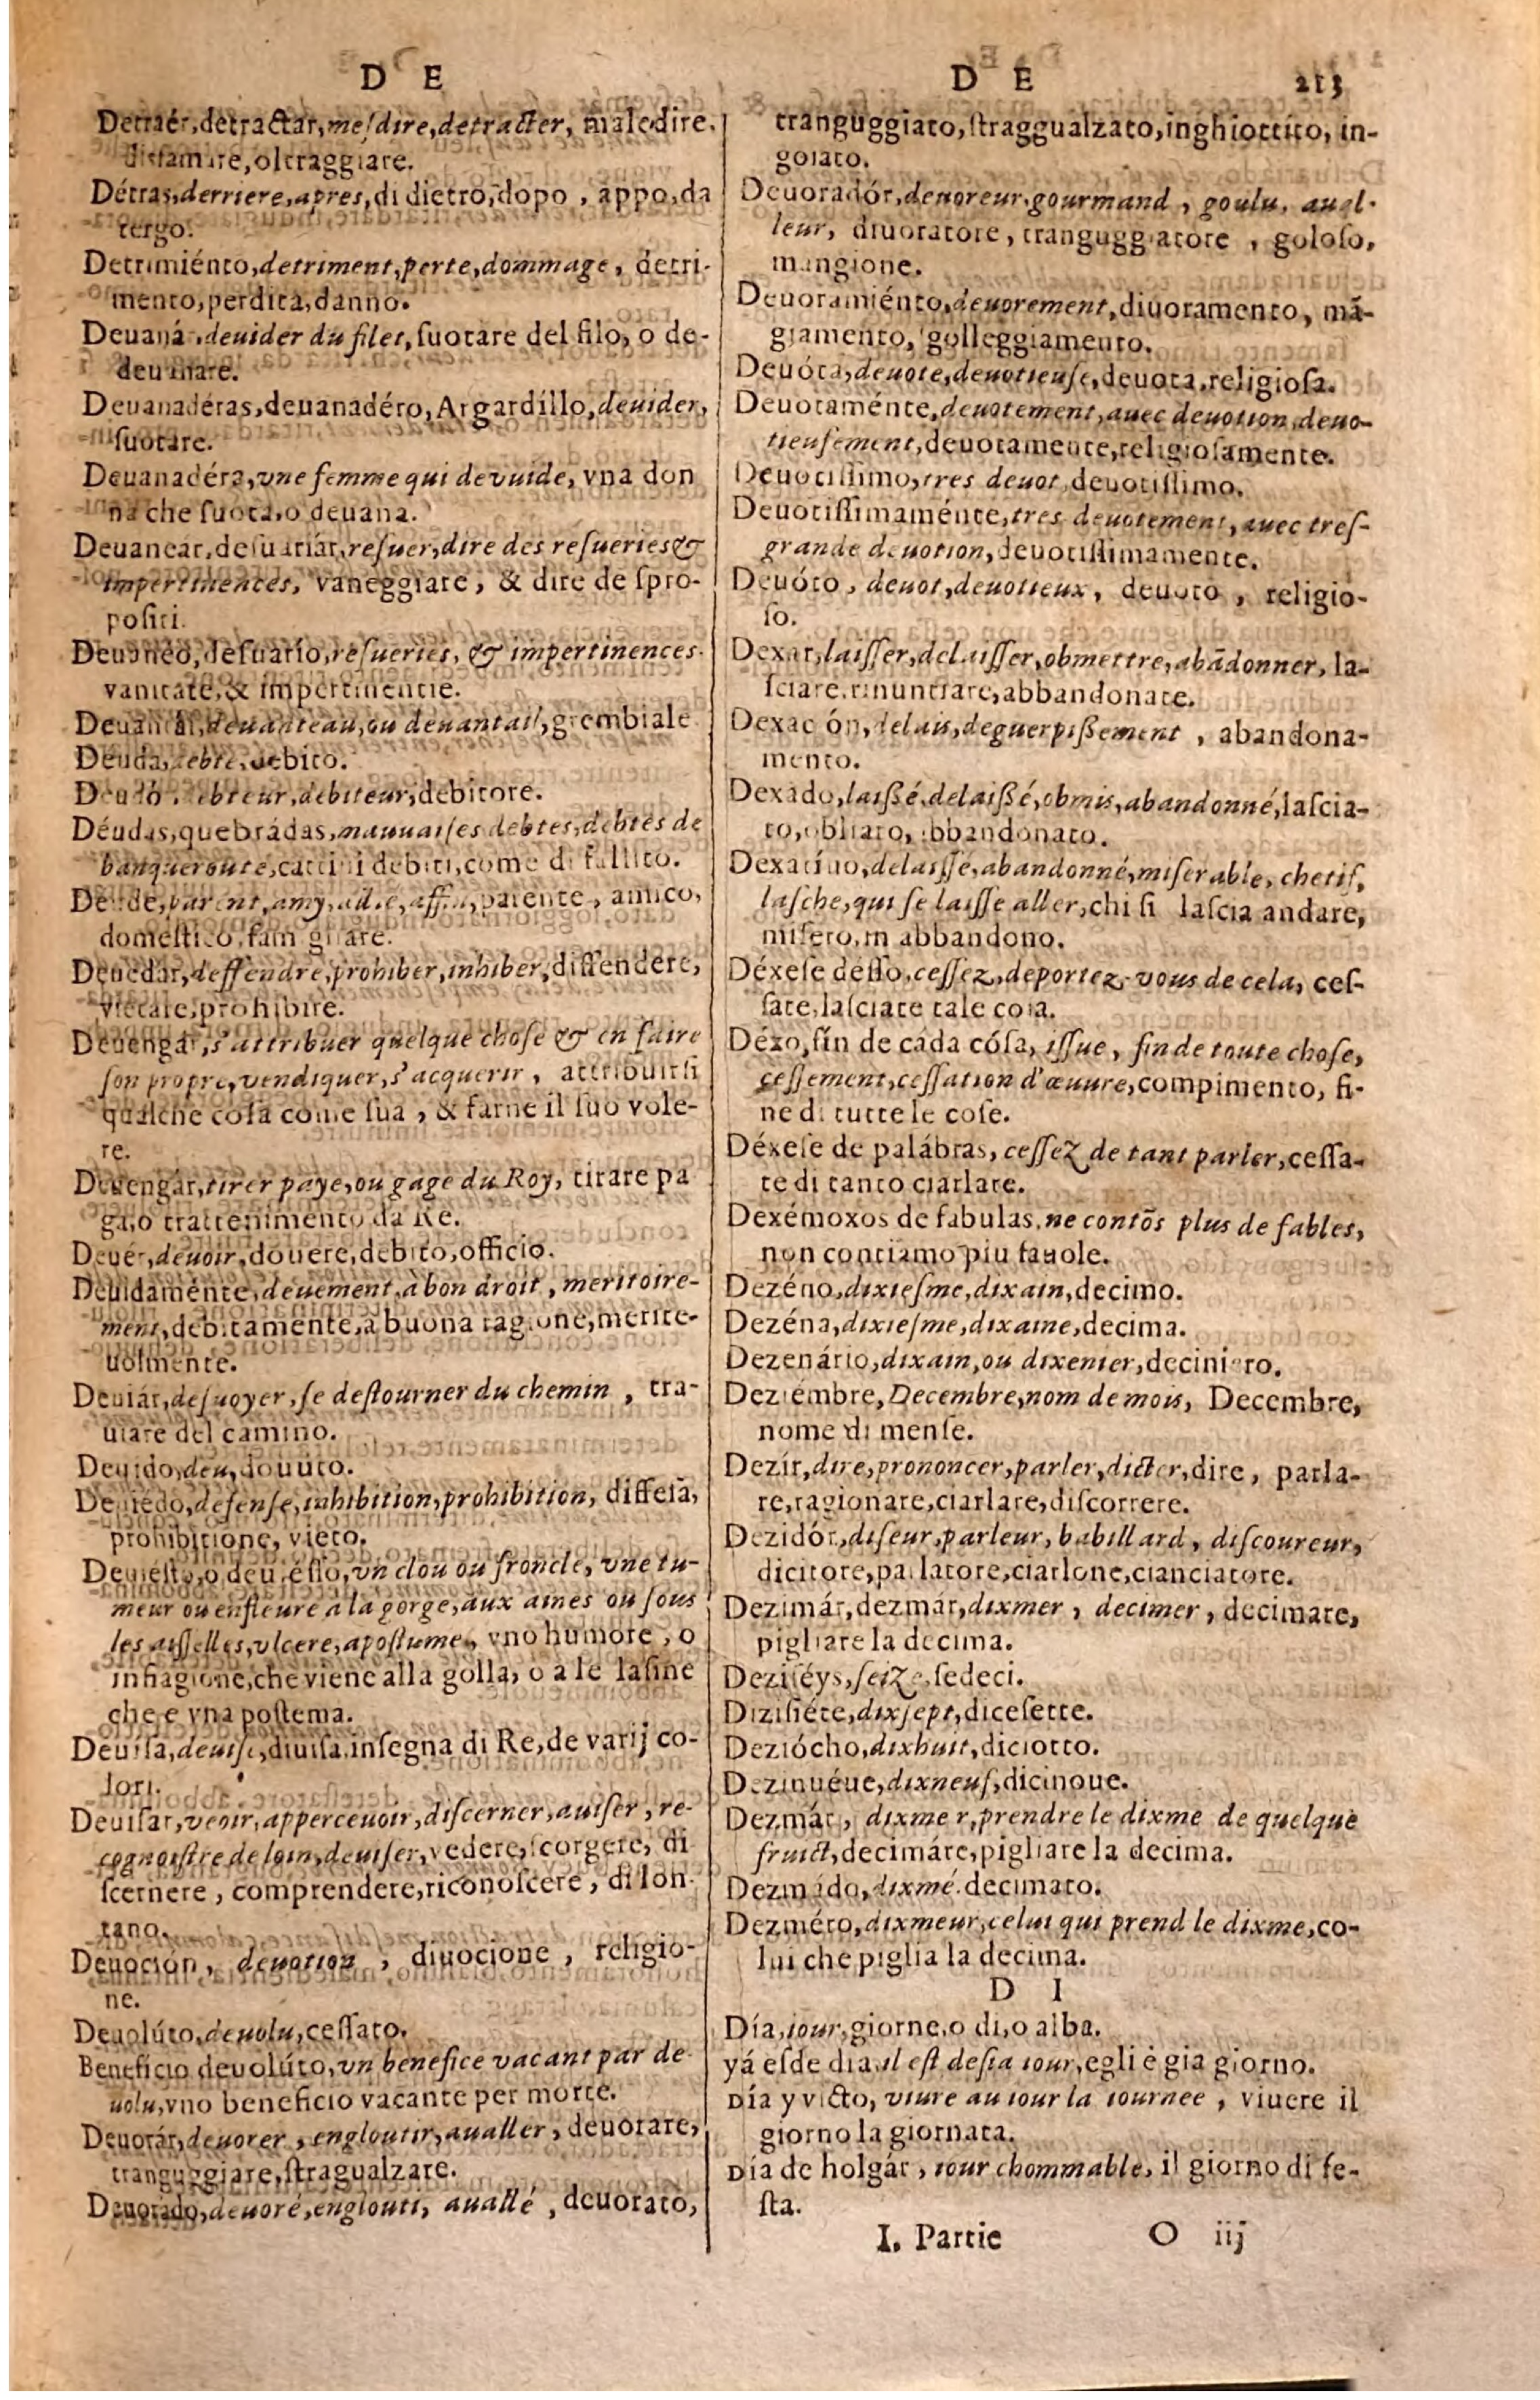 D E
Detraér, detractar, mesdire, detracter, maledire,
diffamare, oltraggiare.
Détras, derriere, apres, di dietro, dopo, appo, da
tergo.
Detrimiénto, detriment, perte, dommage, detri-
mento, perdita, danno.
Deuaná, deuider du filet, suotare del filo, o de-
deuanare.
Deuanadéras, deuanadéro, Argardillo, deuider,
suotare.
Deuanadéra, vne femme qui deuuide, vna don
na che suota, o deuana.
Deuanear, desuariár, resuer, dire des resueries &
impertinences, vaneggiare, & dire de spro-
positi.
Deuanéo, desuarío, resueries, & impertinences.
vanitate, & impertinentie.
Deuantál, deuanteau, ou deuantail, grembiale
Deuda, debte, debito.
debteur, debiteur, debitore.
Déudas, quebrádas, mauuaises debtes, debtes de
banqueroute, cattiui debiti, come di fallito.
parent, amy, parente, amico,
domestico, famigliare.
Deuedár, deffendre, prohiber, inhiber, diffendere,
vietare, prohibire.
Deuengár, s'attribuer quelque chose & en faire
son propre, vendiquer, s'acquerir, attribuirsi
qualche cosa come sua, & farne il suo vole-
re.
Deuengár, tirer paye, ou gage du Roy, tirare pa
ga, o trattenimento da Re.
Deuér, deuoir, douere, debito, officio.
Deuidaménte, deuement, à bon droit, meritoire-
ment, debitamente, a buona ragione, merite-
uolmente.
Deuiár, desuoyer, se destourner du chemin, tra-
uiare del camino.
Deuido, deu, douuto.
Deuiédo, defense, inhibition, prohibition, diffesa,
prohibitione, vieto.
Deuiésto, o deuiesso, vn clou ou froncle, vne tu-
meur ou enfleure a la gorge, aux aines ou sous
les aisselles, vlcere, apostume, vno humore, o
infiagione, che viene alla golla, o a le lasine
che e vna postema.
Deuísa, deuise, diuisa, insegna di Re, de varij co-
lori.
Deuisar, veoir, apperceuoir, discerner, auiser, re-
cognoistre de loin, deuiser, vedere, scorgere, di
scernere, comprendere, riconoscere, di lon-
tano.
Deuoción, deuotion, diuocione, religio-
ne.
Deuolúto, deuolu, cessato.
Beneficio deuolúto, vn benefice vacant par de-
uolu, vno beneficio vacante per morte.
Deuorár, deuorer, engloutir, aualler, deuorare,
tranguggiare, stragualzare.
Deuorado, deuoré, englouti, auallé, deuorato,
D E 213
tranguggiato, straggualzato, inghiottito, in-
goiato.
Deuoradór, deuoreur, gourmand, goulu, aual-
leur, diuoratore, tranguggiatore, goloso,
mangione.
Deuoramiénto, deuorement, diuoramento, mã-
giamento, golleggiamento.
Deuóta, deuote, deuotieuse, deuota, religiosa.
Deuotaménte, deuotement, auec deuotion, deuo-
tieusement, deuotamente, religiosamente.
Deuotissimo, tres deuot, deuotissimo.
Deuotissimaménte, tres deuotement, auec tres-
grande deuotion, deuotissimamente.
Deuóto, deuot, deuotieux, deuoto, religio-
so.
Dexar, laisser, delaisser, obmettre, abãdonner, la-
sciare, rinuntiare, abbandonate.
Dexación, delais, deguerpißement, abandona-
mento.
Dexádo, laißé, delaißé, obmis, abandonné, lascia-
to, obliato, abbandonato.
Dexatíuo, delaissé, abandonné, miserable, chetif,
lasche, qui se laisse aller, chi si lascia andare,
misero, in abbandono.
Déxese desso, cessez, deportez-vous de cela, ces-
sate, lasciate tale cosa.
Déxo, fin de cáda cósa, issue, fin de toute chose,
cessement, cessation d'œuure, compimento, fi-
ne di tutte le cose.
Déxese de palábras, cessez de tant parler, cessa-
te di tanto ciarlare.
Dexémoxos de fabulas, ne contõs plus de fables,
non contiamo piu fauole.
Dezéno, dixiesme, dixain, decimo.
Dezéna, dixiesme, dixaine, decima.
Dezenário, dixain, ou dixenier, deciniero.
Deziémbre, Decembre, nom de mois, Decembre,
nome di mense.
Dezír, dire, prononcer, parler, dicter, dire, parla-
re, ragionare, ciarlare, discorrere.
Dezidór, diseur, parleur, babillard, discoureur,
dicitore, parlatore, ciarlone, cianciatore.
Dezimár, dezmár, dixmer, decimer, decimare,
pigliare la decima.
Deziséys, seize, sedeci.
Dizisiéte, dixsept, dicesette.
Deziócho, dixhuit, diciotto.
Dezinuéue, dixneuf, dicinoue.
Dezmár, dixmer, prendre le dixme de quelque
fruict, decimáre, pigliare la decima.
Dezmádo, dixmé, decimato.
Dezméro, dixmeur, celui qui prend le dixme, co-
lui che piglia la decima.
D I
Día, iour, giorne, o di, o alba.
yá esde dia, il est desia iour, egli è gia giorno.
Día y victo, viure au iour la iournee, viuere il
giorno la giornata.
Día de holgár, iour chommable, il giorno di fe-
sta.
I. Partie O iij